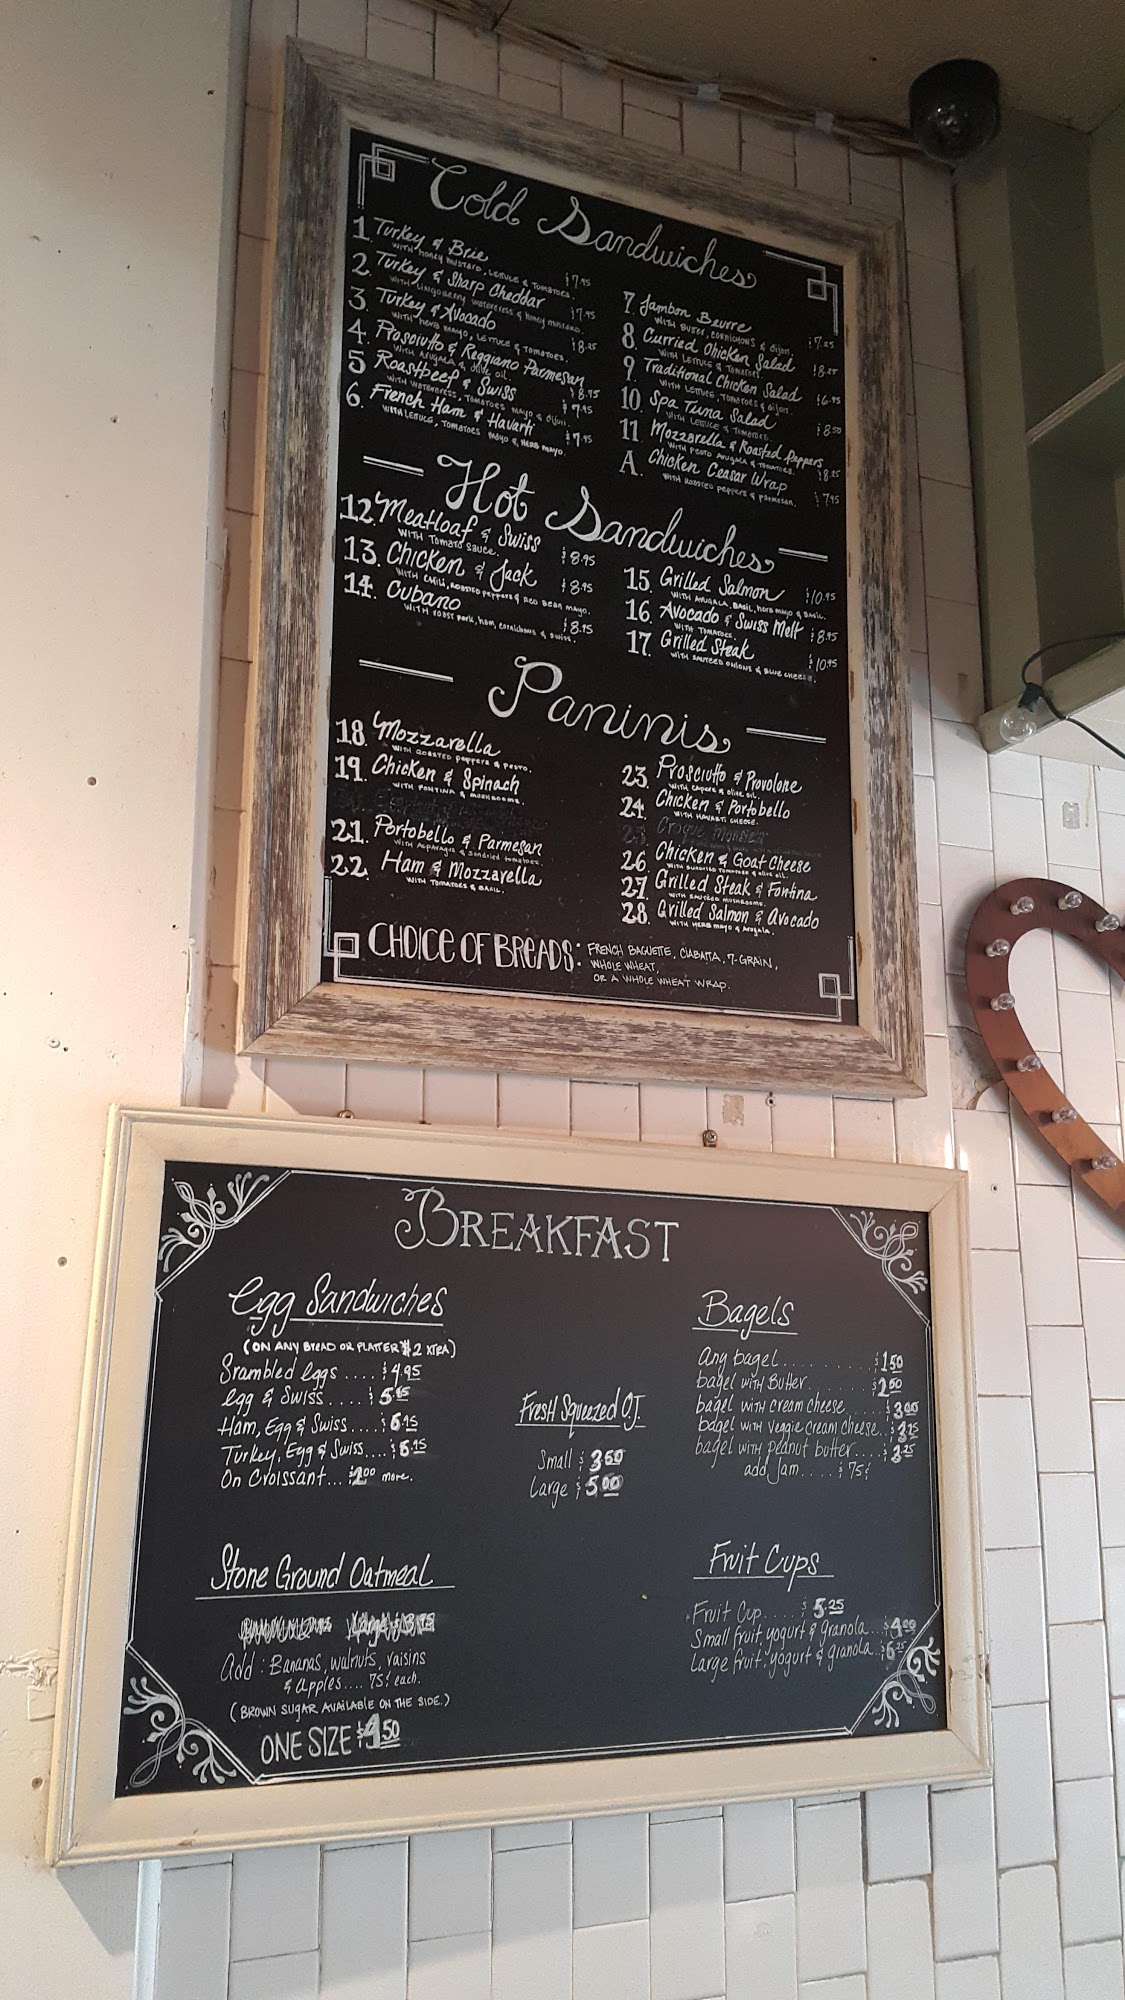 Cold Sandwiches
1. Turkey & Brie
WITH HONEY MUSTARD, LETTUCE & TOMATOES. $7.95
2. Turkey & Sharp Cheddar
WITH LINGONBERRY, WATERCRESS & HONEY MUSTARD. $7.95
3. Turkey & Avocado
WITH HERB MAYO, LETTUCE & TOMATOES. $8.25
4. Prosciutto & Reggiano Parmesan
WITH ARUGALA & OLIVE OIL. $8.95
5 Roastbeef & Swiss
WITH WATERCRESS, TOMATOES MAYO & DIJON. $7.95
6. French Ham & Havarti
WITH LETTUCE, TOMATOES MAYO & HERB MAYO. $7.95
7 Jambon Beurre
WITH BUTTER, CORNICHONS & DIJON. $7.25
8. Curried Chicken Salad
WITH LETTUCE & TOMATOES. $8.25
9. Traditional Chicken Salad
WITH LETTUCE, TOMATOES & DIJON. $6.95
10. Spa Tuna Salad
WITH LETTUCE & TOMATOES. $8.50
11. Mozzarella & Roasted Peppers
WITH PESTO ARUGALA & TOMATOES. $8.25
A. Chicken Ceasar Wrap
WITH ROASTED PEPPERS & PARMESAN. $7.95
Hot Sandwiches
12. Meatloaf & Swiss
WITH TOMATO SAUCE. $8.95
13. Chicken & Jack $8.95
WITH CHILI, ROASTED PEPPERS & RED BEAN MAYO.
14. Cubano $8.95
WITH ROAST PORK, HAM, CORNICHONS & SWISS.
15. Grilled Salmon $10.95
WITH ARUGALA, BASIL, HERB MAYO & BASIL.
16. Avocado & Swiss Melt $8.95
WITH TOMATOES.
17. Grilled Steak $10.95
WITH SAUTEED ONIONS & BLUE CHEESE.
Paninis
18. Mozzarella
WITH ROASTED PEPPERS & PESTO.
19. Chicken & Spinach
WITH FONTINA & MUSHROOMS.
21. Portobello & Parmesan
WITH ASPARAGUS & SUNDRIED TOMATOES.
22. Ham & Mozzarella
WITH TOMATOES & BASIL.
23. Prosciutto & Provolone
WITH CAPERS & OLIVE OIL.
24. Chicken & Portobello
WITH HAVARTI CHEESE.
25. Croque Monsieur
26. Chicken & Goat Cheese
WITH SUNDRIED TOMATOES & OLIVE OIL.
27. Grilled Steak & Fontina
WITH SAUTEED MUSHROOMS.
28. Grilled Salmon & Avocado
WITH HERB MAYO & ARUGALA.
CHOICE OF BREADS: FRENCH BAGUETTE, CIABATTA, 7-GRAIN,
WHOLE WHEAT,
OR A WHOLE WHEAT WRAP.
BREAKFAST
Egg Sandwiches
(ON ANY BREAD OR PLATTER $2 XTRA)
Srambled eggs .... $4.95
egg & Swiss .... $5.95
Ham, Egg & Swiss .... $6.95
Turkey, Egg & Swiss .... $6.95
On Croissant ... $2.00 more.
Fresh Squeezed O.J.
Small $3.50
Large $5.00
Bagels
Any bagel .......... $1.50
bagel WITH Butter ....... $2.00
bagel WITH cream cheese ..... $3.00
bagel WITH Veggie cream cheese .. $3.25
bagel WITH peanut butter .... $3.25
add Jam .... $75¢
Stone Ground Oatmeal
Large $3.95
Add : Bananas, walnuts, raisins
& apples .... 75¢ each.
(BROWN SUGAR AVAILABLE ON THE SIDE.)
ONE SIZE $4.50
Fruit Cups
Fruit Cup .... $5.25
Small fruit, yogurt & granola ... $4.00
Large fruit, yogurt & granola .. $6.25